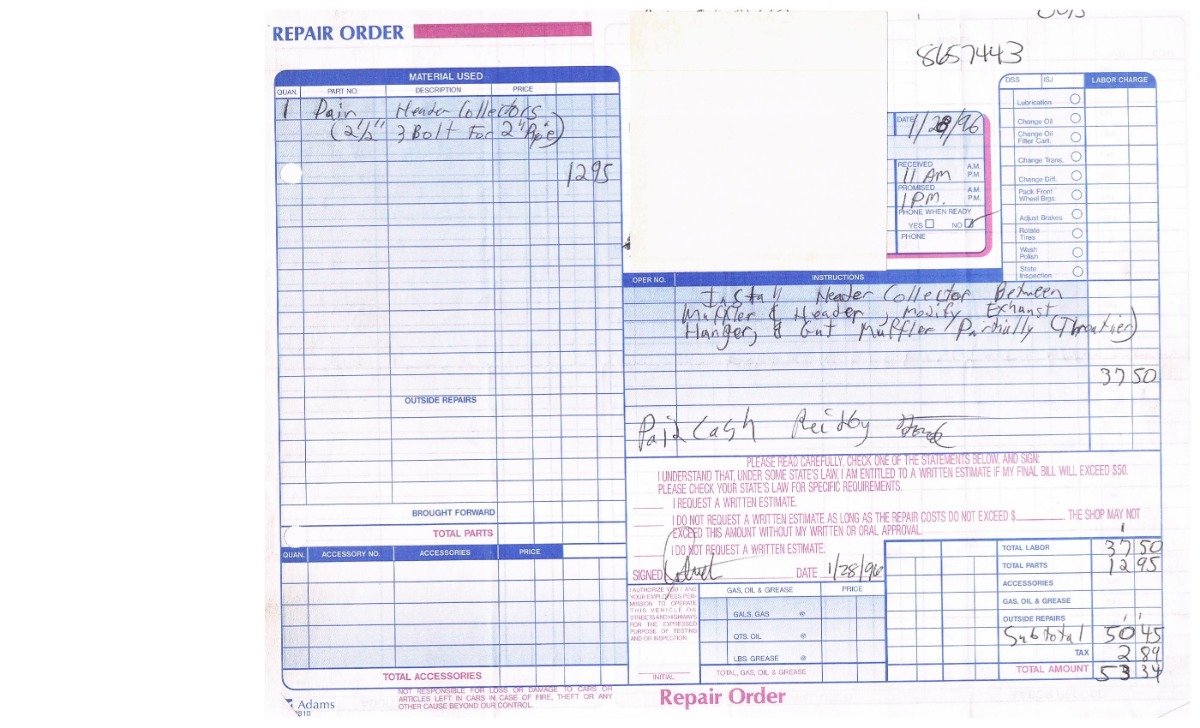 REPAIR ORDER
8657443
MATERIAL USED
QUAN. PART NO. DESCRIPTION PRICE
1 Pair Header Collectors
(2½" 3 Bolt For 2" Pipe)
1295
OUTSIDE REPAIRS
BROUGHT FORWARD
TOTAL PARTS
QUAN. ACCESSORY NO. ACCESSORIES PRICE
TOTAL ACCESSORIES
NOT RESPONSIBLE FOR LOSS OR DAMAGE TO CARS OR
ARTICLES LEFT IN CARS IN CASE OF FIRE, THEFT OR ANY
OTHER CAUSE BEYOND OUR CONTROL.
Adams
DATE 1/28/96
RECEIVED A.M.
11 AM P.M.
PROMISED A.M.
1 P.M. P.M.
PHONE WHEN READY
YES NO
PHONE
LABOR CHARGE
Lubrication
Change Oil
Change Oil
Filter Cart.
Change Trans.
Change Diff.
Pack Front
Wheel Brgs.
Adjust Brakes
Rotate
Tires
Wash
Polish
State
Inspection
OPER NO. INSTRUCTIONS
Install Header Collector Between
Muffler & Header, Modify Exhaust
Hanger, & Gut Muffler Partially (Throatier)
37 50
Paid Cash
PLEASE READ CAREFULLY, CHECK ONE OF THE STATEMENTS BELOW, AND SIGN:
I UNDERSTAND THAT, UNDER SOME STATE'S LAW, I AM ENTITLED TO A WRITTEN ESTIMATE IF MY FINAL BILL WILL EXCEED $50.
PLEASE CHECK YOUR STATE'S LAW FOR SPECIFIC REQUIREMENTS.
I REQUEST A WRITTEN ESTIMATE.
I DO NOT REQUEST A WRITTEN ESTIMATE AS LONG AS THE REPAIR COSTS DO NOT EXCEED $ THE SHOP MAY NOT
EXCEED THIS AMOUNT WITHOUT MY WRITTEN OR ORAL APPROVAL.
I DO NOT REQUEST A WRITTEN ESTIMATE.
SIGNED DATE 1/28/96
I AUTHORIZE YOU / AND
YOUR EMPLOYEES PER-
MISSION TO OPERATE
THIS VEHICLE ON
STREETS AND HIGHWAYS
FOR THE EXPRESSED
PURPOSE OF TESTING
AND OR INSPECTION.
INITIAL
GAS, OIL & GREASE PRICE
GALS. GAS @
QTS. OIL @
LBS. GREASE @
TOTAL, GAS, OIL & GREASE
TOTAL LABOR 37 50
TOTAL PARTS 12 95
ACCESSORIES
GAS, OIL & GREASE
OUTSIDE REPAIRS
Subtotal 50 45
TAX 2 89
TOTAL AMOUNT 53 34
Repair Order